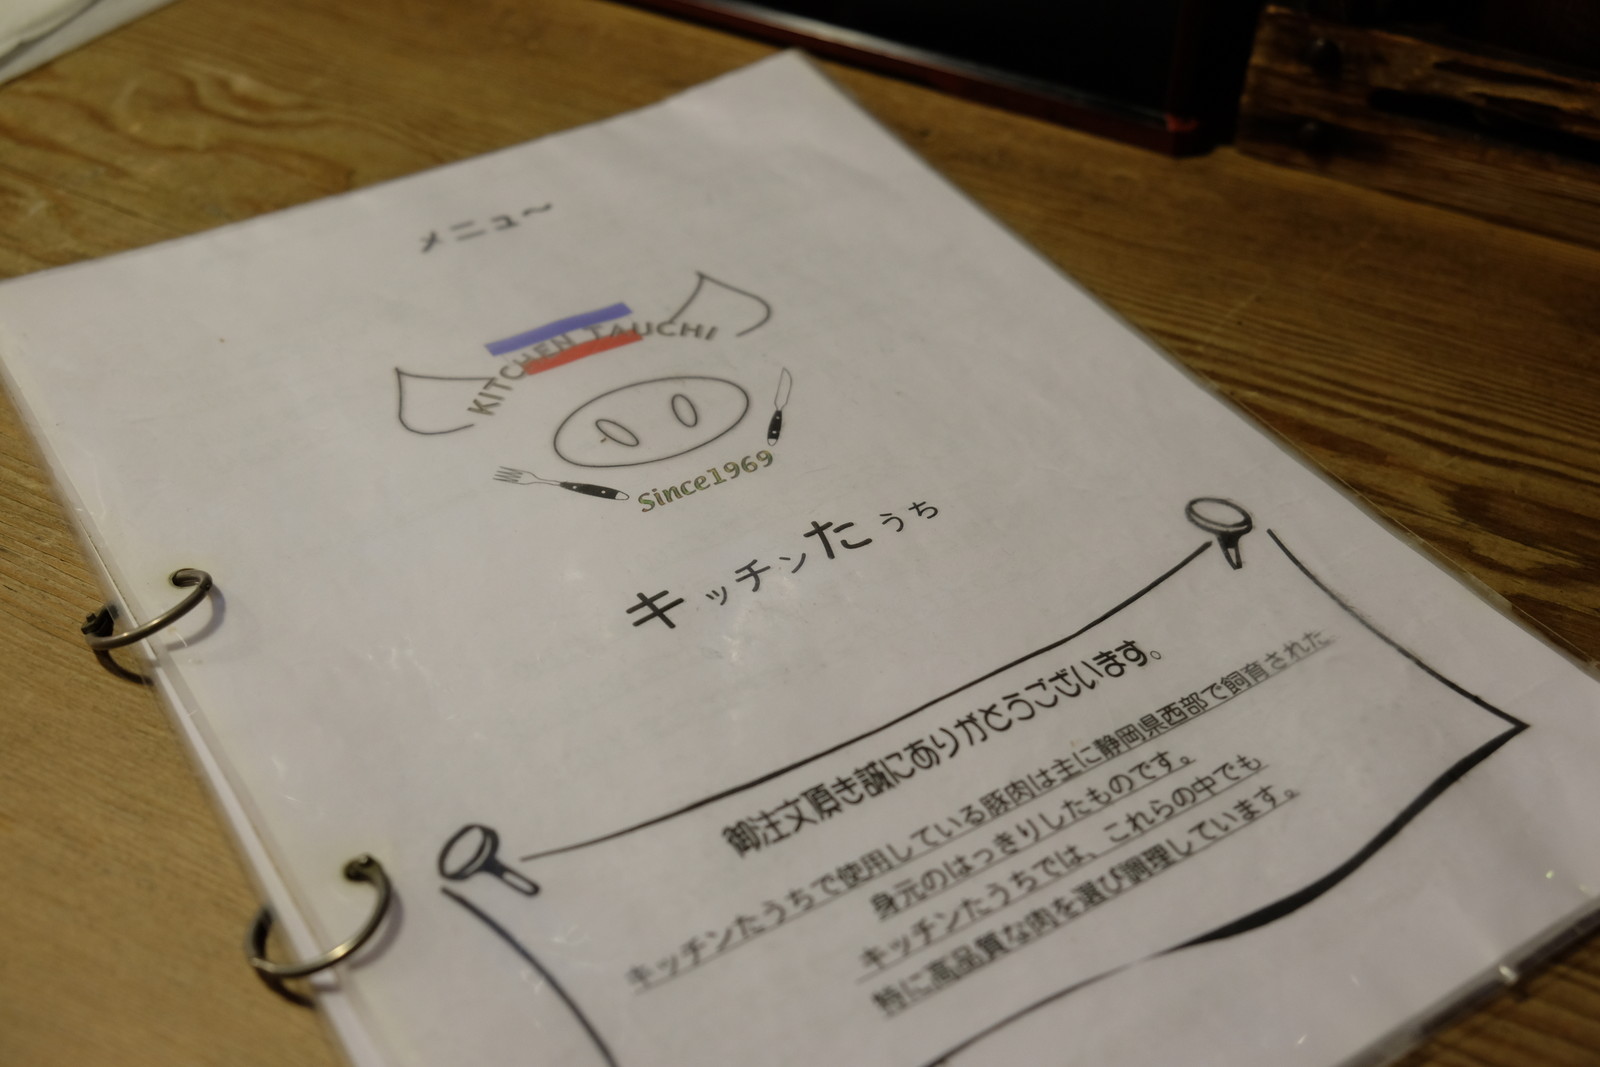 メニュ～
KITCHEN TAUCHI
Since1969
キッチンたうち
御注文頂き誠にありがとうございます。
キッチンたうちで使用している豚肉は主に静岡県西部で飼育された
身元のはっきりしたものです。
キッチンたうちでは、これらの中でも
特に高品質な肉を選び調理しています。